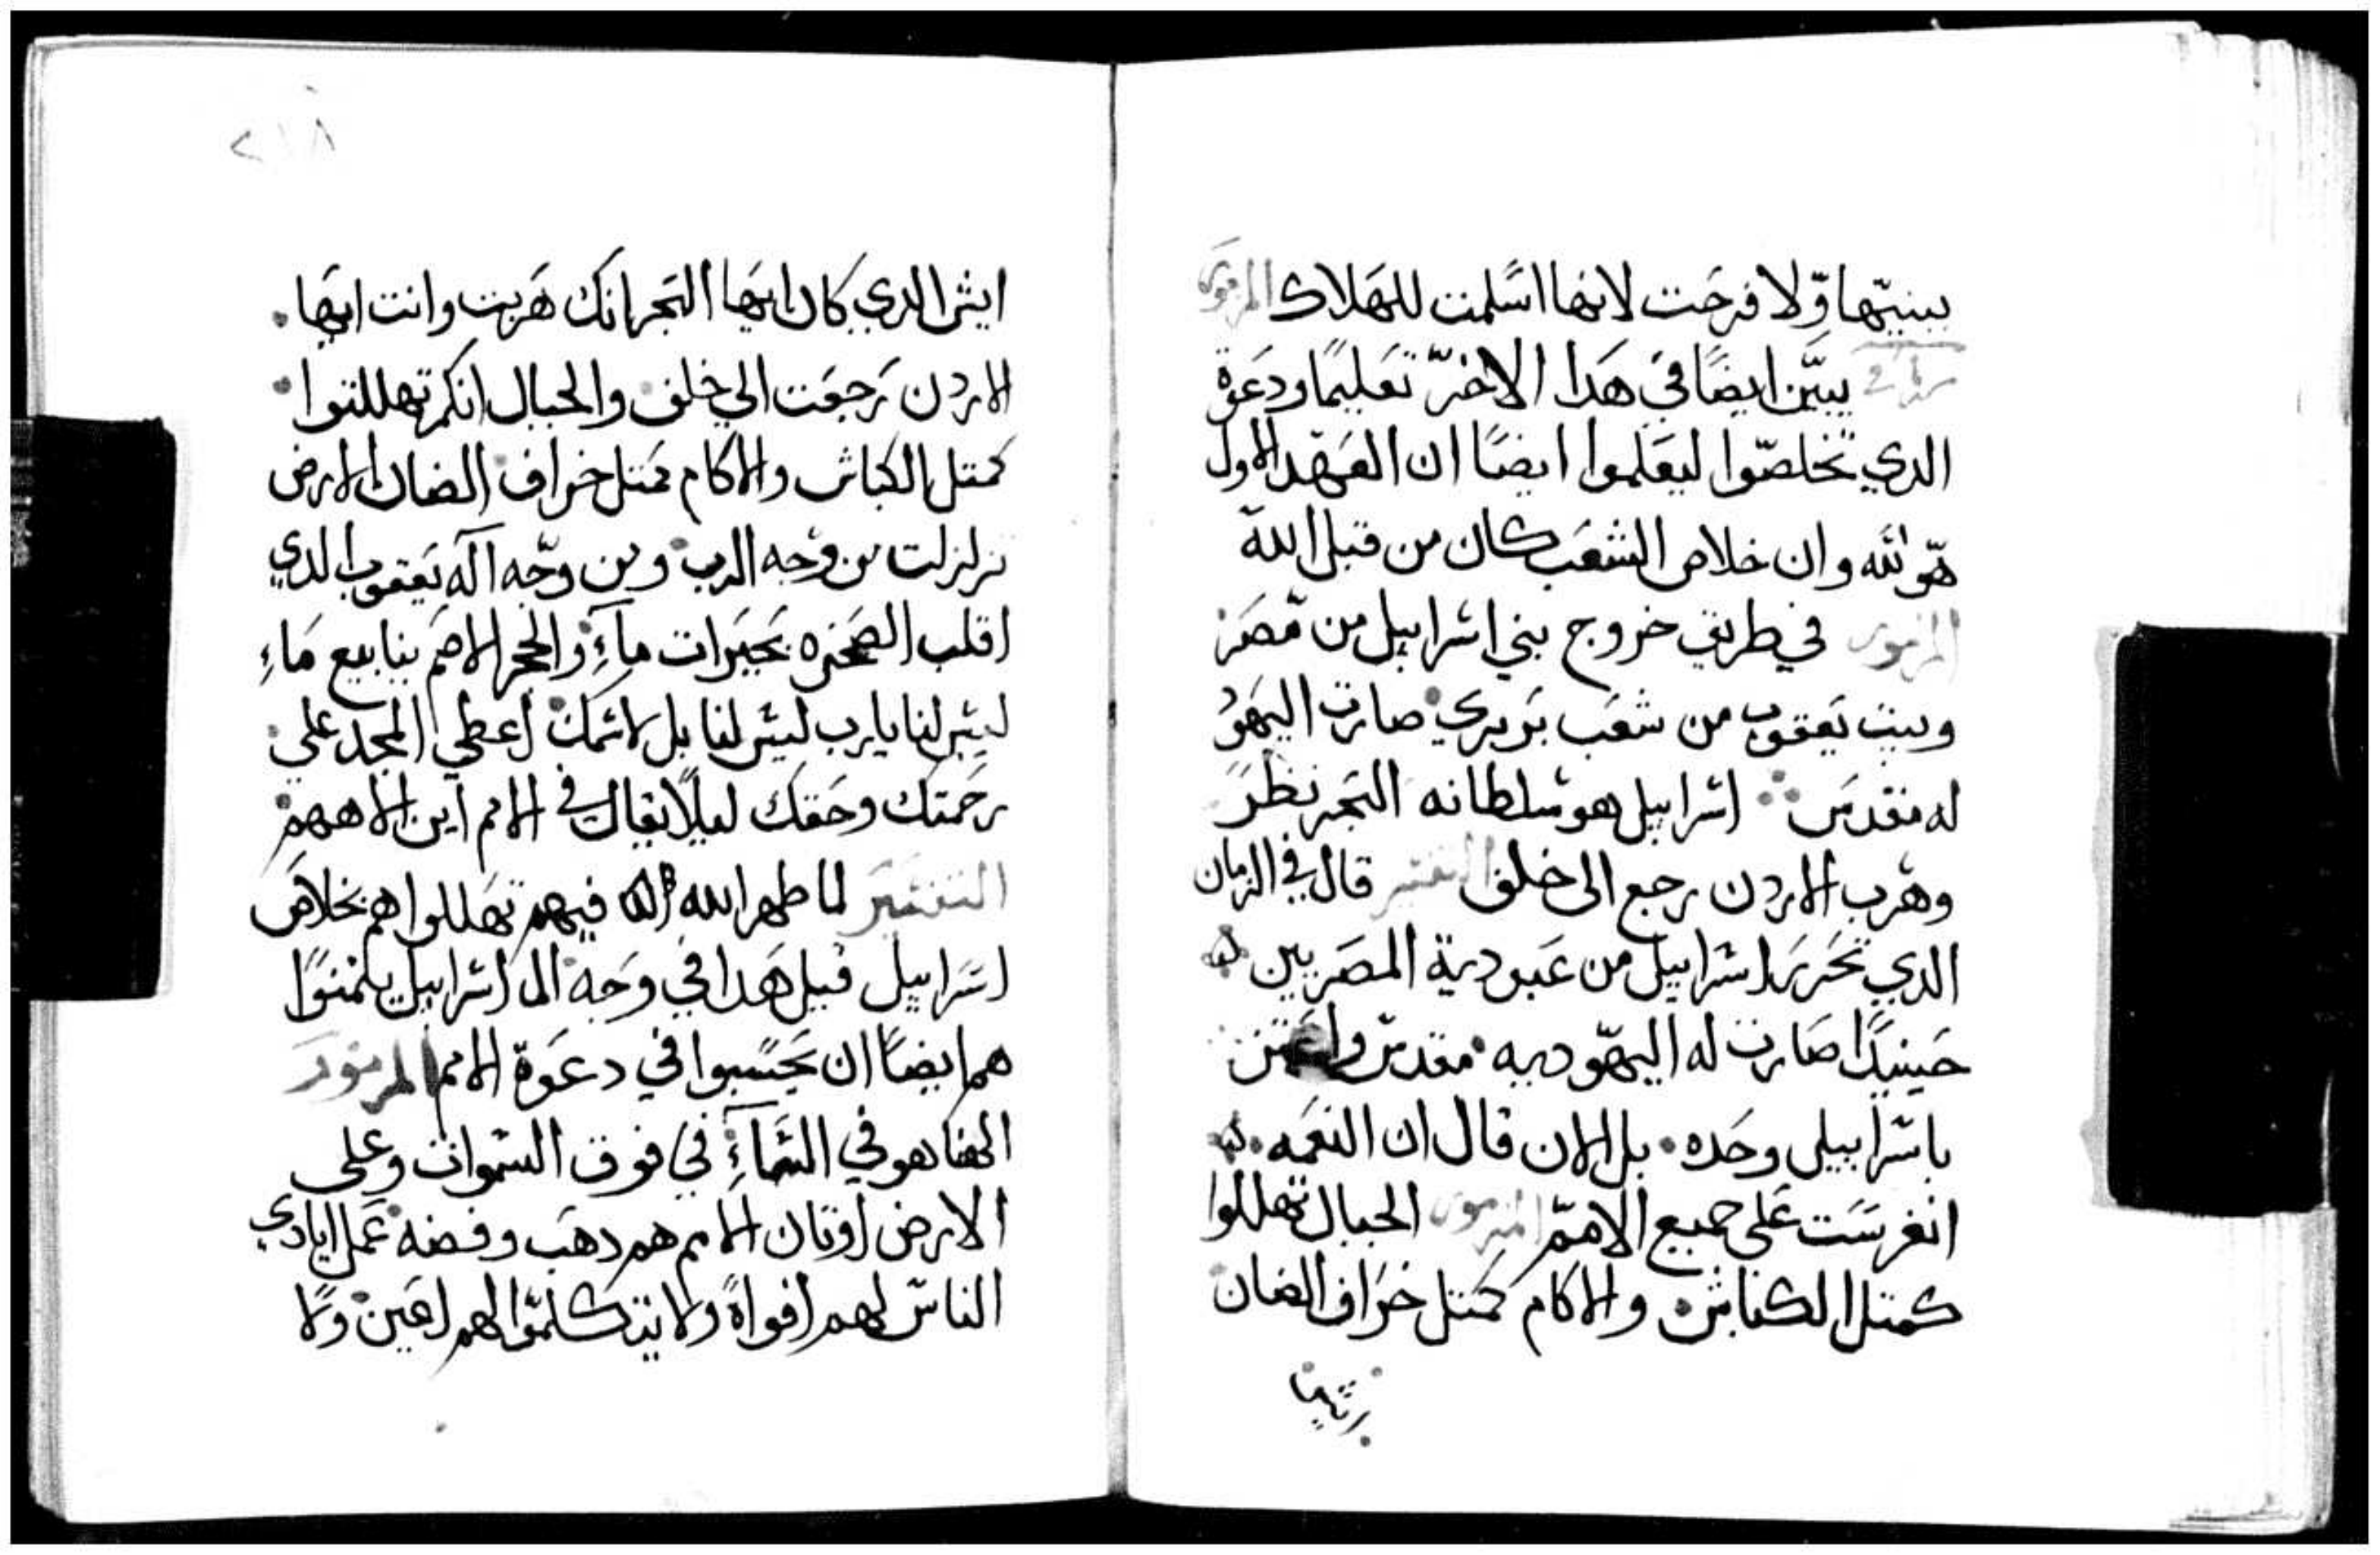 ببنيها ولا فرحت لانها اسلمت للهلاك المزمور
يبين ايضا في هدا الاخر تعليما ودعوة
الدي تخلصوا ليعلموا ايضا ان العهد الاول
هو لله وان خلاص الشعب كان من قبل الله
المزمور في طريق خروج بني اسراييل من مصر
وبيت يعقوب من شعب بربري صارت اليهود
له مقدس اسراييل هو سلطانه البحر نظر
وهرب الاردن رجع الى خلف التفسير قال في الزمان
الدي تحرر اسراييل من عبودية المصريين
حينيدا صارت له اليهوديه مقدس
باسراييلي وحده بل الان قال ان النعمه
انغرست على جميع الامم المزمور الجبال تهللوا
كمتل الكباش والاكام كمتل خراف الضان
٢١٨
ايش الدي كان ايها البحر انك هربت وانت ايها
الاردن رجعت الي خلف والجبال انكم تهللتوا
كمتل الكباش والاكام كمتل خراف الضان الارض
تزلزلت من وجه الرب ومن وجه اله يعقوب الدي
اقلب الصخره بحيرات ماء والحجر الاصم ينابيع ماء
ليس لنا يارب ليس لنا بل لاسمك اعطي المجد علي
رحمتك وحقك ليلا يقال في الامم اين الاههم
التفسير لما ظهر الله فيهم تهللوا هم بخلاص
اسراييل قيل هدا في وجه اله اسراييل يلتمنوا
هم ايضا ان يحسبوا في دعوة الامم المزمور
الهنا هو في السماء في فوق السموات وعلى
الارض اوتان الامم هم دهب وفضه عمل ايادي
الناس لهم افواة ولا يتكلموا لهم اعين ولا